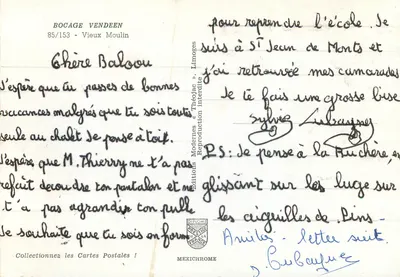 BOCAGE VENDEEN
85/153 - Vieux Moulin
Chère Balsou
J'espère que tu passes de bonnes
vacances malgrés que tu sois toute
seule au chalet Je pense à toi.
J'espère que M. Thierry ne t'a pas
refait decoudre ton pantalon et ne
t'a pas agrandir ton pull
Je souhaite que tu sois en forme
pour reprendre l'école. Je
suis à St Jean de Monts et
j'ai retrouvée mes camarades
Je te fais une grosse bise
Sylvie
P.S: Je pense à la Ruchère, en
glissant sur les luge sur
les aiguilles de Pins -
Amitiés - letter suit.
Editions Modernes « Théojac », Limoges
Reproduction interdite
Collectionnez les Cartes Postales !
MEXICHROME